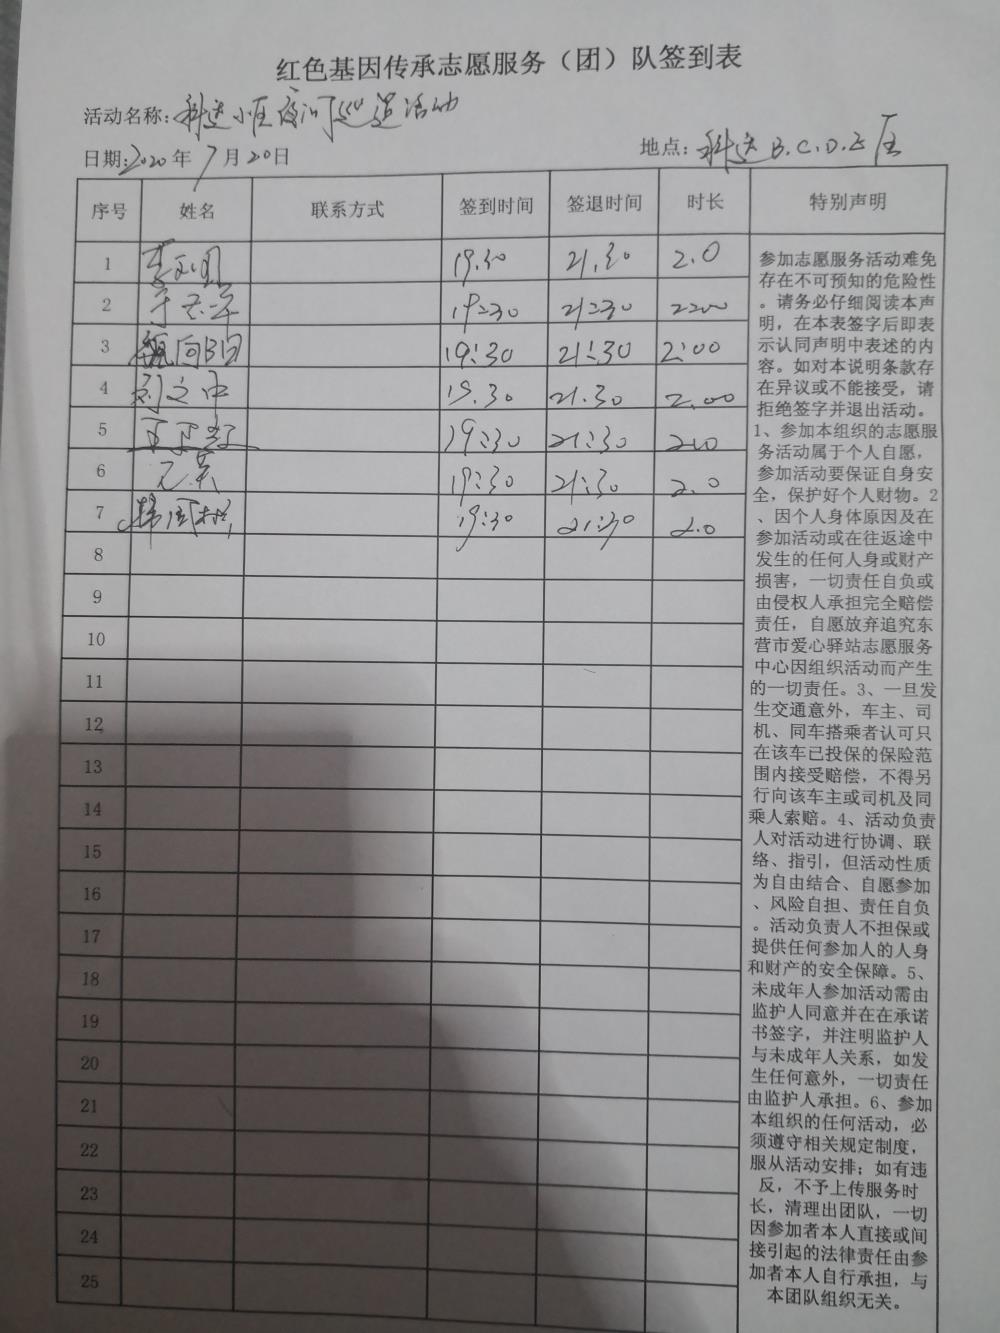 红色基因传承志愿服务（团）队签到表
活动名称：科达小区夜间巡逻活动
日期：2020年7月20日 地点：科达B.C.D.E区
序号 姓名 联系方式 签到时间 签退时间 时长 特别声明
1 19.30 21.30 2.0
2 19:30 21:30 2:00
3 魏向阳 19:30 21:30 2:00
4 刘文中 19.30 21.30 2.00
5 19:30 21:30 2.0
6 19:30 21:30 2.0
7 韩国 19:30 21:30 2.0
8
9
10
11
12
13
14
15
16
17
18
19
20
21
22
23
24
25
参加志愿服务活动难免
存在不可预知的危险性
。请务必仔细阅读本声
明，在本表签字后即表
示认同声明中表述的内
容。如对本说明条款存
在异议或不能接受，请
拒绝签字并退出活动。
1、参加本组织的志愿服
务活动属于个人自愿，
参加活动要保证自身安
全，保护好个人财物。2
、因个人身体原因及在
参加活动或在往返途中
发生的任何人身或财产
损害，一切责任自负或
由侵权人承担完全赔偿
责任，自愿放弃追究东
营市爱心驿站志愿服务
中心因组织活动而产生
的一切责任。3、一旦发
生交通意外，车主、司
机、同车搭乘者认可只
在该车已投保的保险范
围内接受赔偿，不得另
行向该车主或司机及同
乘人索赔。4、活动负责
人对活动进行协调、联
络、指引，但活动性质
为自由结合、自愿参加
、风险自担、责任自负
。活动负责人不担保或
提供任何参加人的人身
和财产的安全保障。5、
未成年人参加活动需由
监护人同意并在在承诺
书签字，并注明监护人
与未成年人关系，如发
生任何意外，一切责任
由监护人承担。6、参加
本组织的任何活动，必
须遵守相关规定制度，
服从活动安排；如有违
反，不予上传服务时
长，清理出团队，一切
因参加者本人直接或间
接引起的法律责任由参
加者本人自行承担，与
本团队组织无关。